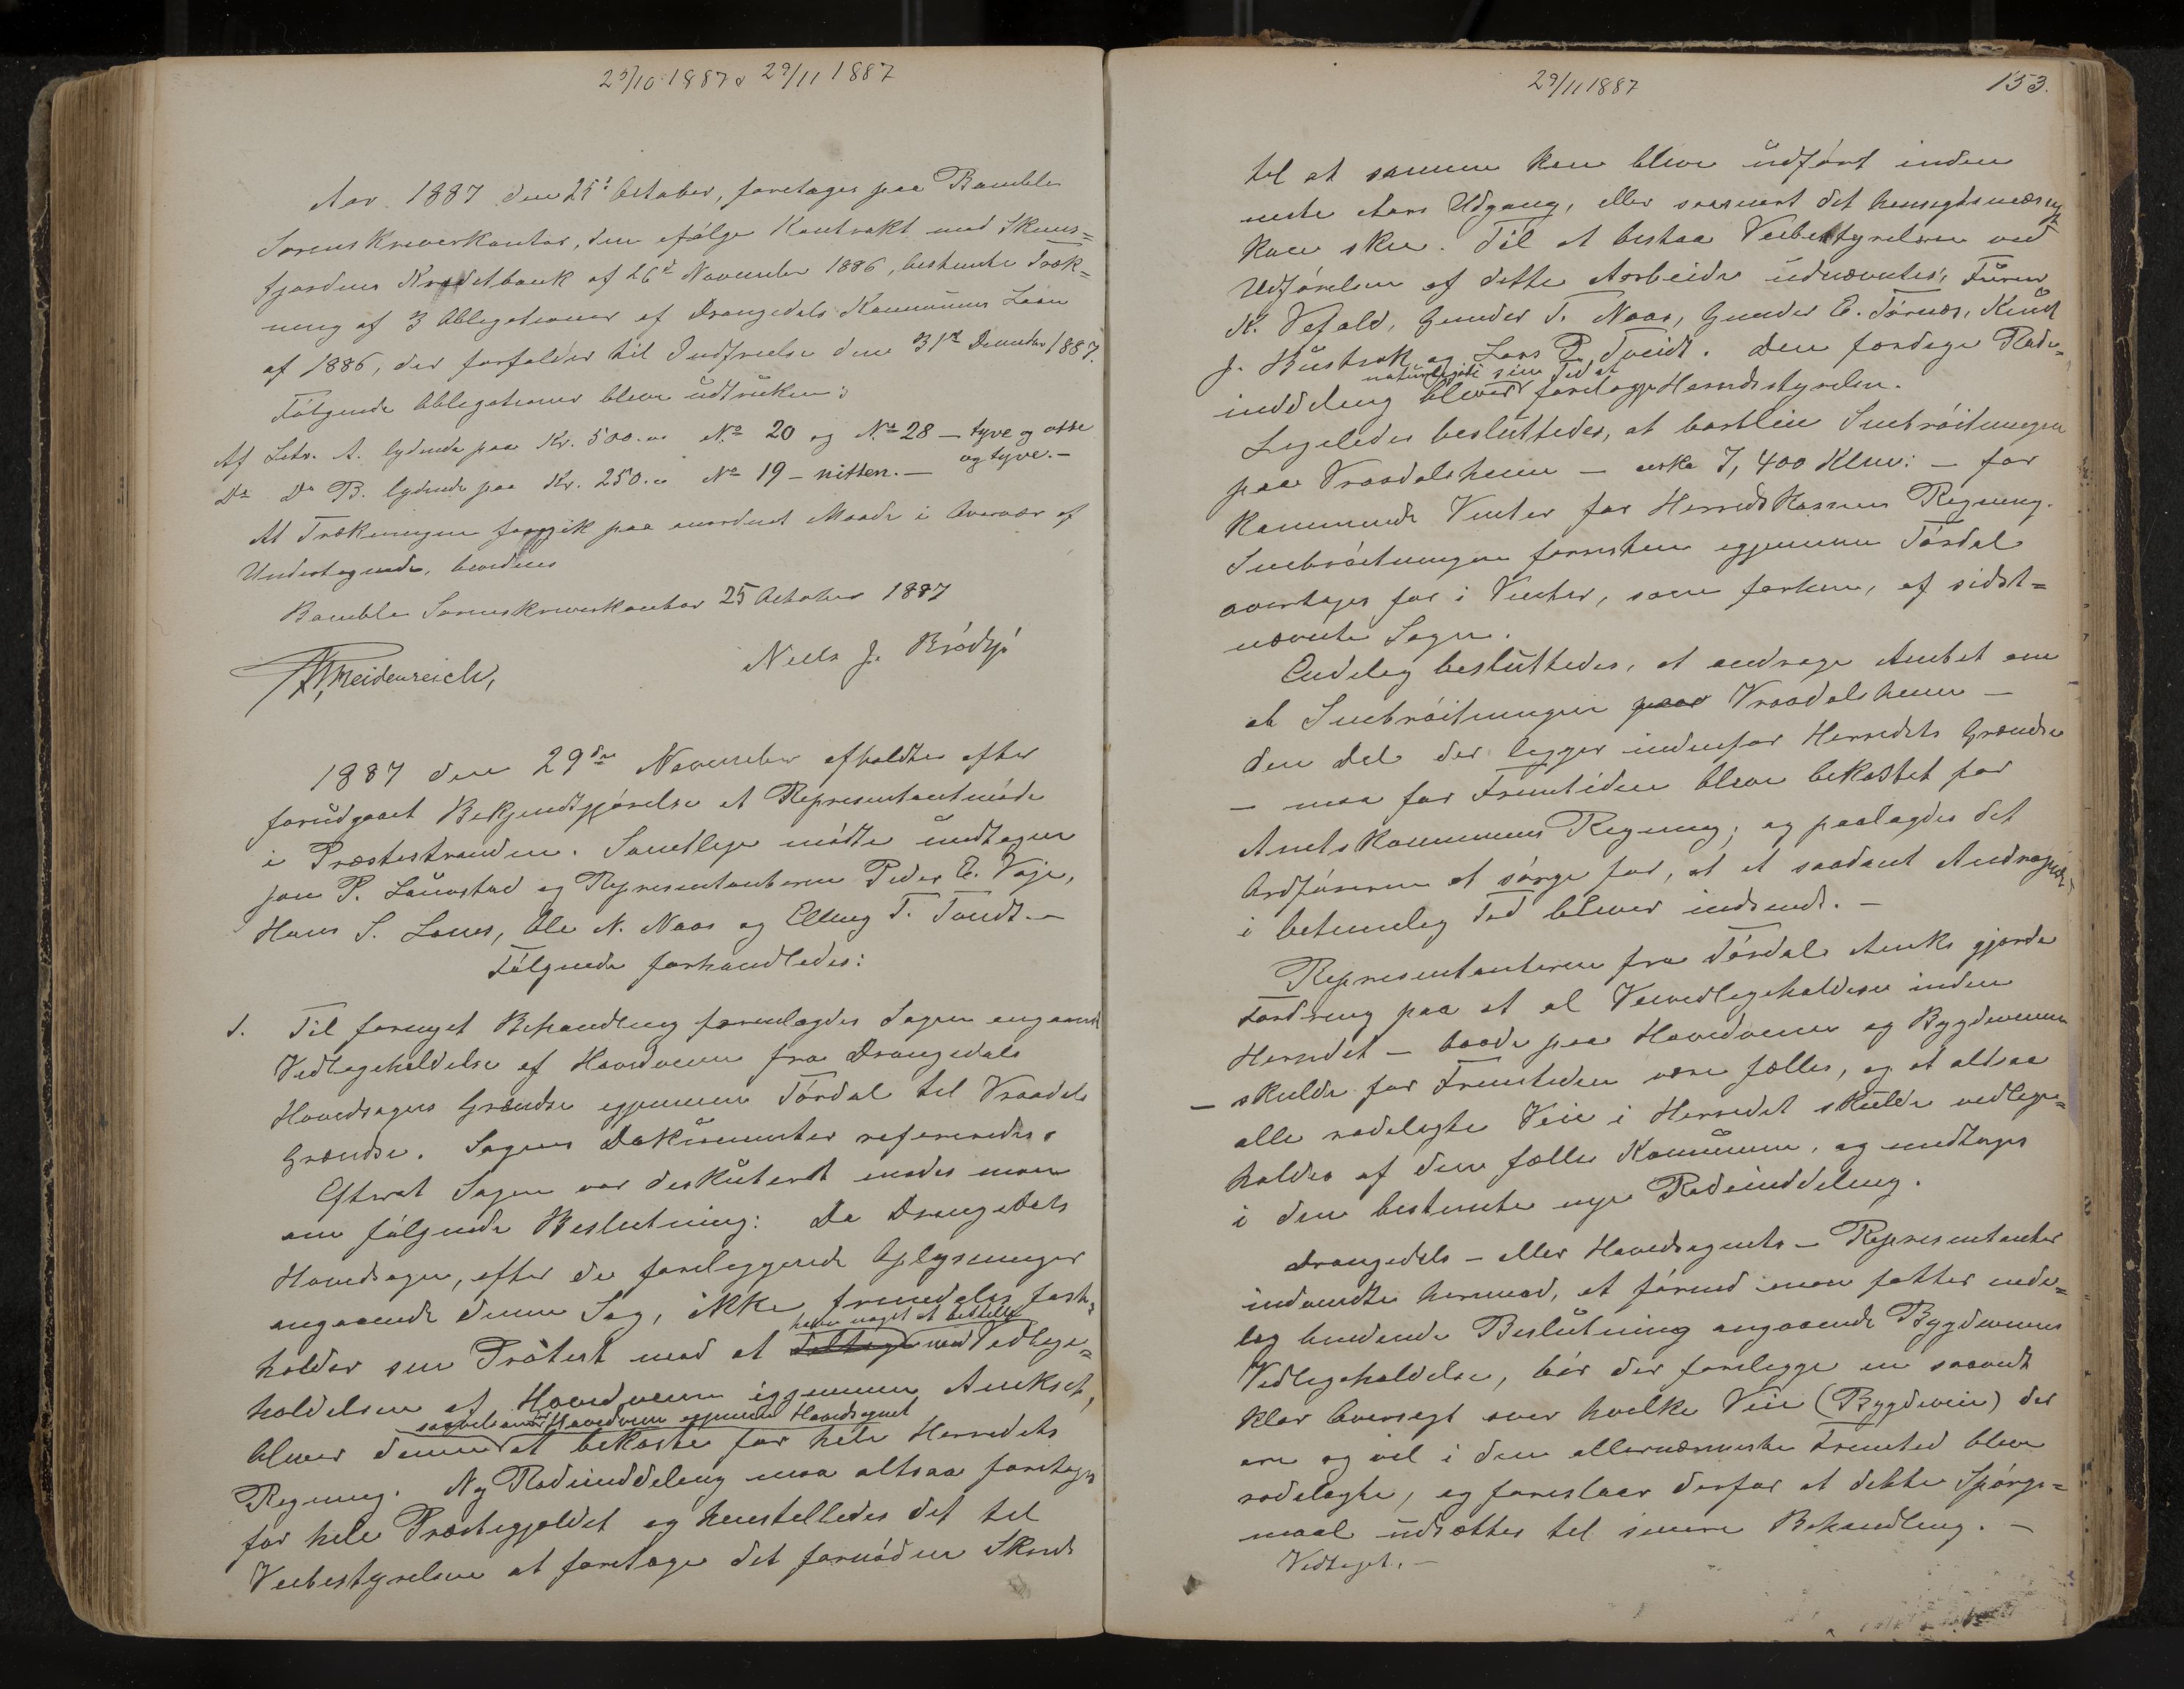 25/10 1887 & 29/11 1887
Aar 1887 den 25de Oktober, foretoges paa Bamble
Sorenskriverkontor, den ifølge Kontrakt med Skiens-
fjordens Kreditbank af 26de November 1886, bestemte Træk-
ning af 3 Obligationer af Drangedals Kommunes Laan
af 1886, der forfalder til Indfrielse den 31te December 1887.
Følgende Obligationer bleve udtrukne:
Af Litr. A. lydende paa Kr. 500.00 No 20 og No 28 – tyve og otte
og tyve. –
Do Do B. lydende paa Kr. 250.00 No 19 – nitten. –
At Trækningen foregik paa anordnet Maade i Overvær af
Undertegnede, bevidnes
Bamble Sorenskriverkontor 25 Oktober 1887
Heidenreich, Niels J. Brødsjø
1887 den 29de November afholdtes efter
forudgaaet Bekjendtgjørelse et Representantmøde
i Præstestranden. Samtlige mødte undtagen
Jon P. Laurstad og Representanterne Peder E. Voje,
Hans S. Lones, Ole N. Naas og Elling T. Tveidt. –
Følgende forhandledes:
1. Til fornyet Behandling foremlagdes Sagen angaaende
Vedligeholdelse af Hovedveien fra Drangedals
Hovedsogns Grændse igjennem Tørdal til Vraadals
Grændse. Sagens Dokumenter refereredes.
Efterat Sagen var diskuteret enedes man
om følgende Beslutning: Da Drangedals
Hovedsogn, efter de foreliggende Oplysninger
angaaende denne Sag, ikke fremdeles fast-
have noget at bestille
holder sin Protest mod at deltage med Vedlige-
holdelsen af Hovedveien igjennem Annekset,
saavelsom Hovedveien igjennem Hovedsognet
bliver denne at bekoste for hele Herredets
Regning. Ny Rodeinddeling maa altsaa foretages
for hele Præstegjeldet og henstilledes det til
Veibestyrelsen at foretage det fornødne Skridt
29/11 1887
153.
til at samme kan blive udført inden
neste Aars Udgang, eller saasnart det hensigtsmæssig
kan ske. Til at bestaa Veibestyrelsen ved
Udførelsen af dette Arbeide udnævntes:
K. Vefald, Gunder T. Naas, Gunder E. Tørnes, Knut
J. Bustrak og Lars P. Tveidt. Den færdige Rode-
naturligvis i sin Tid at
inddeling bliver forelægge Herredsstyrelsen.
Ligeledes besluttedes, at bortleie Snebrøitningen
paa Vraadalsheien – cirka 7,400 Klm: – for
kommende Vinter for Herredskassens Regning.
Snebrøitningen forresten igjennem Tørdal
overtages for i Vinter, som forhen, af sidst-
nævnte Sogn.
Endelig besluttedes, at andrage Amtet om
at Snebrøitningen paa Vraadalsheien –
den Del der ligger indenfor Herredets Grændse
– maa for Fremtiden blive bekostet for
Amtskommunens Regning; og paalagdes det
Ordføreren at sørge for, at et saadant Andragende
i betimelig Tid bliver indsendt. –
Representanterne fra Tørdals Anneks gjorde
Fordring paa at al Veivedligeholdelse inden
Herredet – baade paa Hovedveien og Bygdeveiene
– skulde for Fremtiden være fælles, og at altsaa
alle rodelagte Veie i Herredet skulde vedlige-
holdes af den fælles Kommune, og medtages
i den bestemte nye Rodeinddeling.
Drangedals – eller Hovedsognets – Representanter
indvendte hermod, at førend man fatter ende-
lig bindende Beslutning angaaende Bygdeveienes
Vedligeholdelse, bør der foreligge en saavidt
klar Oversigt over hvilke Veie (Bygdeveie) der
ere og vil i den allernærmeste Fremtid blive
rodelagte, og foreslaar derfor at dette Spørgs-
maal udsættes til senere Behandling. –
Vedtaget. –